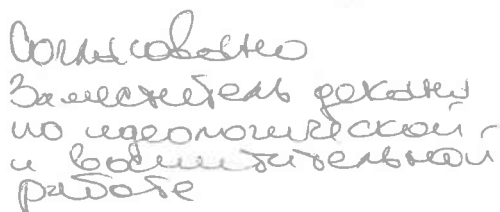 Согласовано
Заместитель декана
по идеологической
и воспитательной
работе